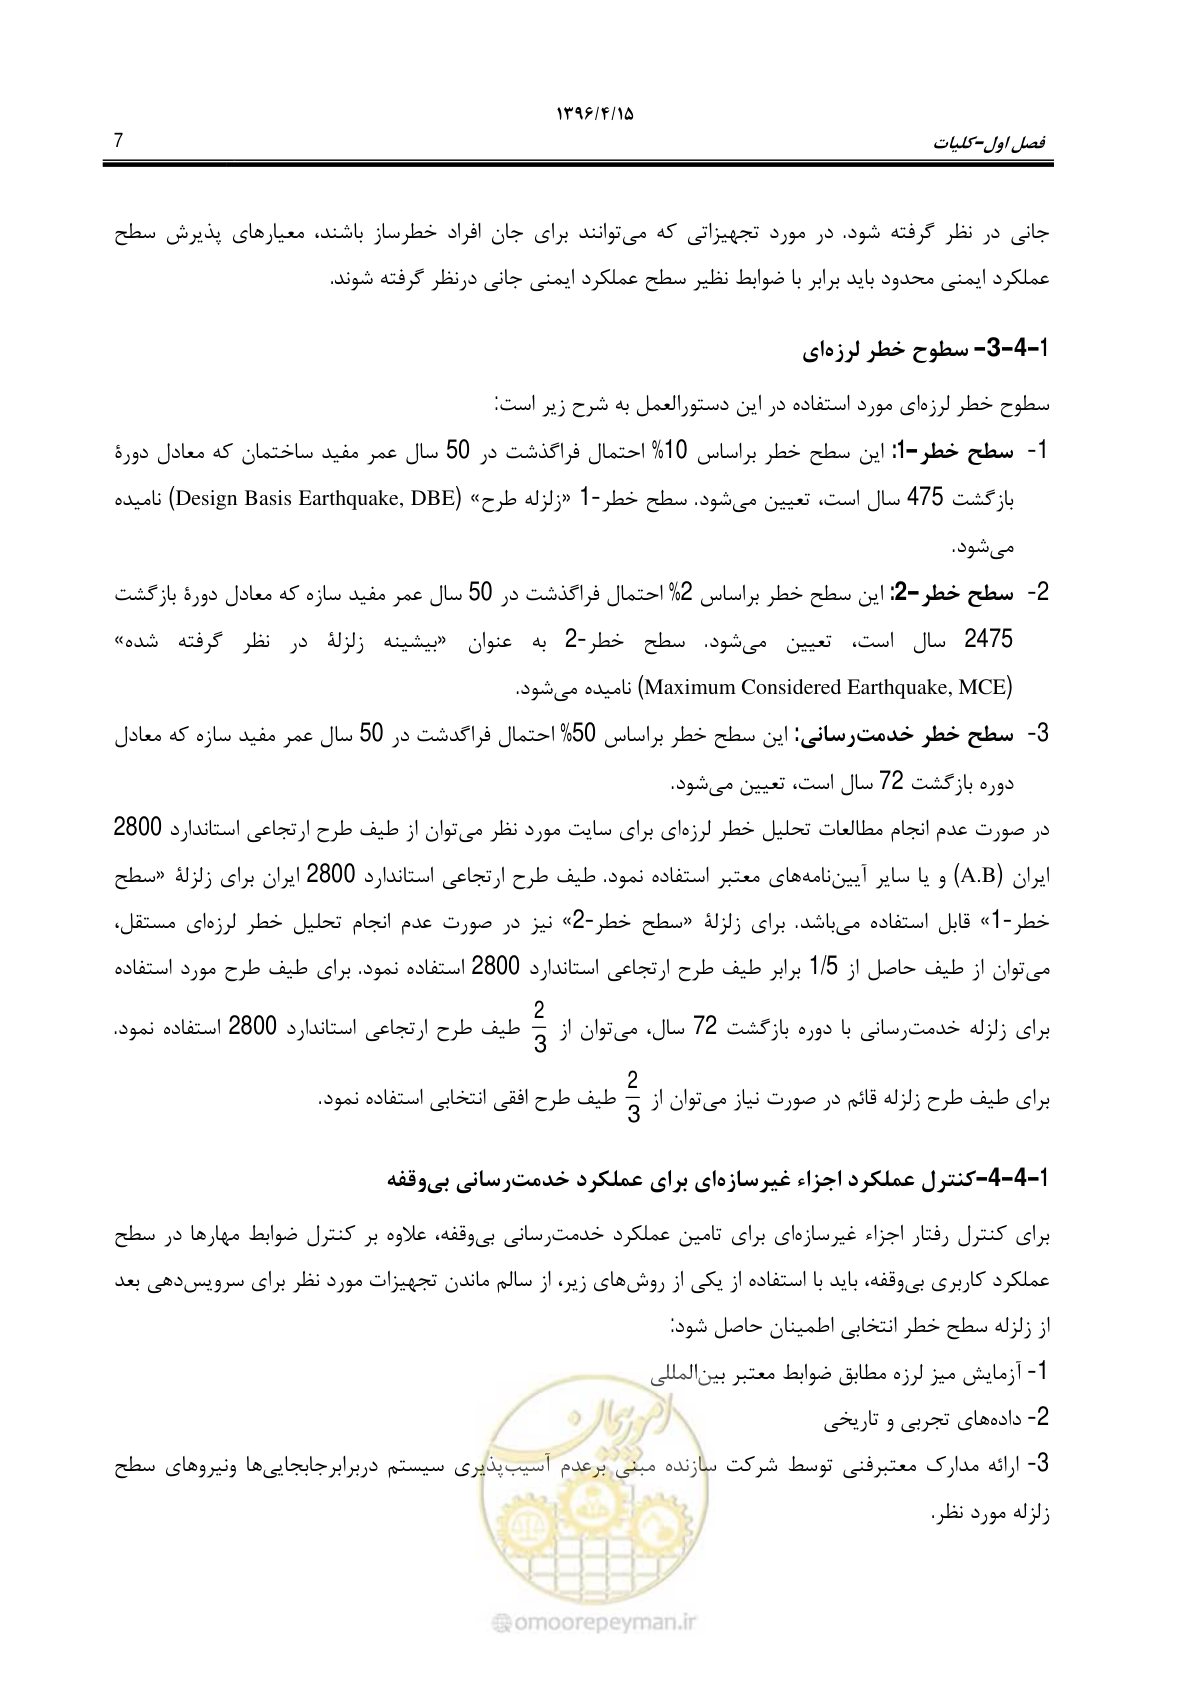 ۱۳۹۶/۴/۱۵
فصل اول-کلیات 7
جانی در نظر گرفته شود. در مورد تجهیزاتی که می‌توانند برای جان افراد خطرساز باشند، معیارهای پذیرش سطح
عملکرد ایمنی محدود باید برابر با ضوابط نظیر سطح عملکرد ایمنی جانی درنظر گرفته شوند.
1-4-3- سطوح خطر لرزه‌ای
سطوح خطر لرزه‌ای مورد استفاده در این دستورالعمل به شرح زیر است:
1- سطح خطر-1: این سطح خطر براساس 10% احتمال فراگذشت در 50 سال عمر مفید ساختمان که معادل دورهٔ
بازگشت 475 سال است، تعیین می‌شود. سطح خطر-1 «زلزله طرح» (Design Basis Earthquake, DBE) نامیده
می‌شود.
2- سطح خطر-2: این سطح خطر براساس 2% احتمال فراگذشت در 50 سال عمر مفید سازه که معادل دورهٔ بازگشت
2475 سال است، تعیین می‌شود. سطح خطر-2 به عنوان «بیشینه زلزلهٔ در نظر گرفته شده»
(Maximum Considered Earthquake, MCE) نامیده می‌شود.
3- سطح خطر خدمت‌رسانی: این سطح خطر براساس 50% احتمال فراگدشت در 50 سال عمر مفید سازه که معادل
دوره بازگشت 72 سال است، تعیین می‌شود.
در صورت عدم انجام مطالعات تحلیل خطر لرزه‌ای برای سایت مورد نظر می‌توان از طیف طرح ارتجاعی استاندارد 2800
ایران (A.B) و یا سایر آیین‌نامه‌های معتبر استفاده نمود. طیف طرح ارتجاعی استاندارد 2800 ایران برای زلزلهٔ «سطح
خطر-1» قابل استفاده می‌باشد. برای زلزلهٔ «سطح خطر-2» نیز در صورت عدم انجام تحلیل خطر لرزه‌ای مستقل،
می‌توان از طیف حاصل از 1/5 برابر طیف طرح ارتجاعی استاندارد 2800 استفاده نمود. برای طیف طرح مورد استفاده
برای زلزله خدمت‌رسانی با دوره بازگشت 72 سال، می‌توان از 2/3 طیف طرح ارتجاعی استاندارد 2800 استفاده نمود.
برای طیف طرح زلزله قائم در صورت نیاز می‌توان از 2/3 طیف طرح افقی انتخابی استفاده نمود.
1-4-4-کنترل عملکرد اجزاء غیرسازه‌ای برای عملکرد خدمت‌رسانی بی‌وقفه
برای کنترل رفتار اجزاء غیرسازه‌ای برای تامین عملکرد خدمت‌رسانی بی‌وقفه، علاوه بر کنترل ضوابط مهارها در سطح
عملکرد کاربری بی‌وقفه، باید با استفاده از یکی از روش‌های زیر، از سالم ماندن تجهیزات مورد نظر برای سرویس‌دهی بعد
از زلزله سطح خطر انتخابی اطمینان حاصل شود:
1- آزمایش میز لرزه مطابق ضوابط معتبر بین‌المللی
2- داده‌های تجربی و تاریخی
3- ارائه مدارک معتبرفنی توسط شرکت سازنده مبنی برعدم آسیب‌پذیری سیستم دربرابرجابجایی‌ها ونیروهای سطح
زلزله مورد نظر.
امورپیمان
@omoorepeyman.ir